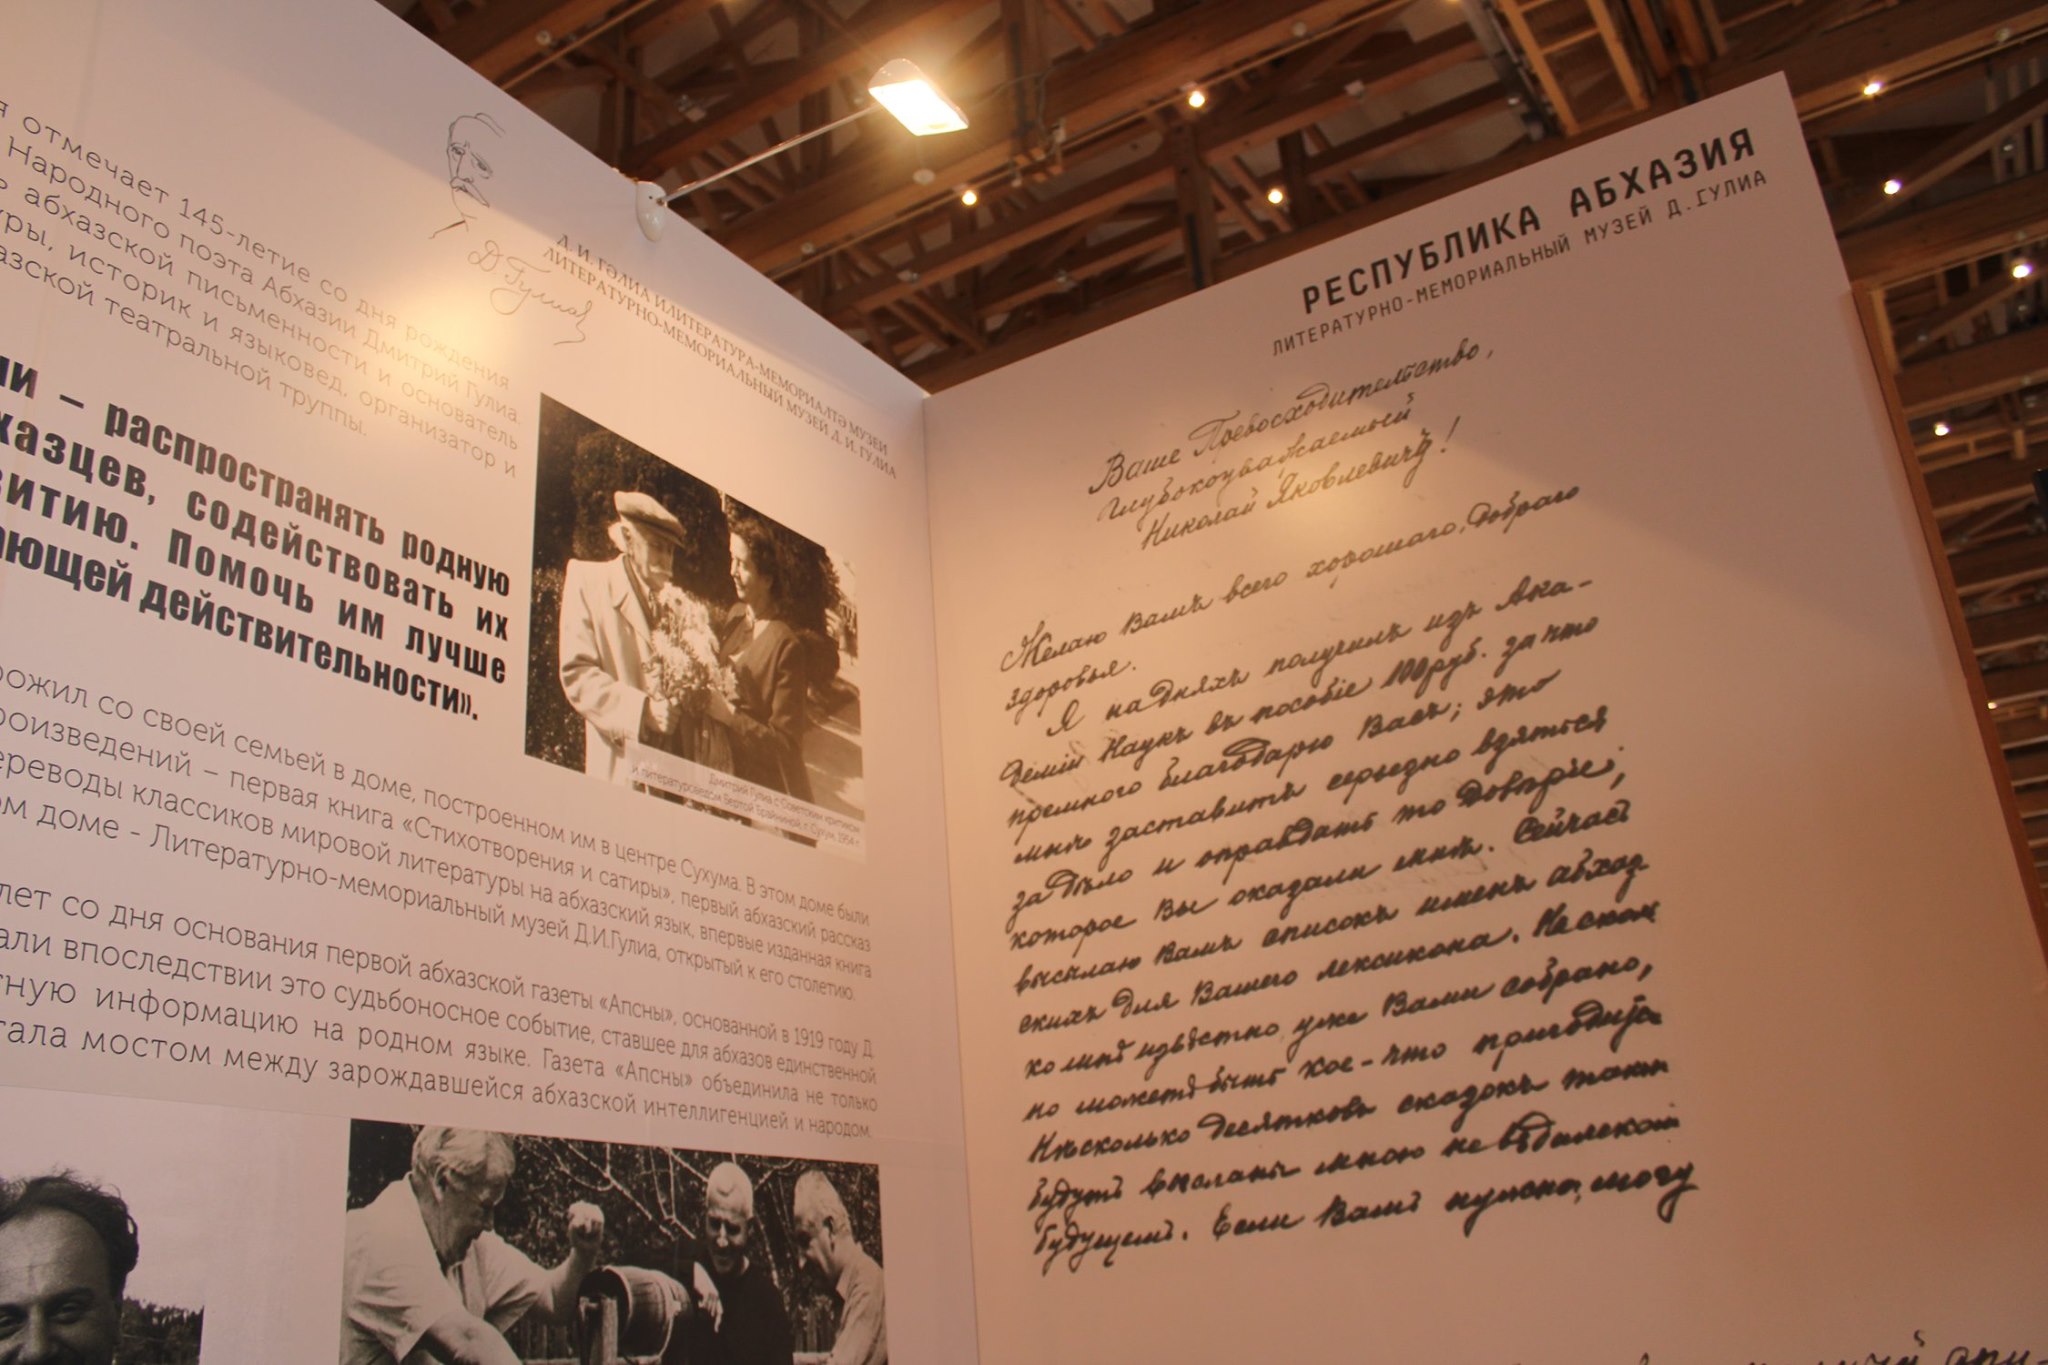 отмечает 145-летие со дня рождения
Народного поэта Абхазии Дмитрий Гулиа.
абхазской письменности и основатель
историк и языковед, организатор и
театральной труппы.
– распространять родную
содействовать их
Помочь им лучше
действительности».
со своей семьей в доме, построенном им в центре Сухума. В этом доме были
– первая книга «Стихотворения и сатиры», первый абхазский рассказ
классиков мировой литературы на абхазский язык, впервые изданная книга
доме - Литературно-мемориальный музей Д.И.Гулиа, открытый к его столетию.
лет со дня основания первой абхазской газеты «Апсны», основанной в 1919 году Д.
впоследствии это судьбоносное событие, ставшее для абхазов единственной
информацию на родном языке. Газета «Апсны» объединила не только
мостом между зарождавшейся абхазской интеллигенцией и народом.
Д. Гулиа
Д. И. ГӘЛИА ИЛИТЕРАТУРА-МЕМОРИАЛТӘ МУЗЕИ
ЛИТЕРАТУРНО-МЕМОРИАЛЬНЫЙ МУЗЕЙ Д. И. ГУЛИА
Дмитрий Гулиа с Советским критиком
и литературоведом Бертой Брайниной, г. Сухум, 1954 г.
РЕСПУБЛИКА АБХАЗИЯ
ЛИТЕРАТУРНО-МЕМОРИАЛЬНЫЙ МУЗЕЙ Д.ГУЛИА
Ваше Превосходительство,
глубокоуважаемый
Николай Яковлевичъ!
Желаю Вамъ всего хорошаго, добраго
здоровья.
Я на дняхъ получилъ изъ Ака-
деміи Наукъ въ пособіе 100 руб. за что
премного благодарю Васъ; это
мнѣ заставитъ серьезно взяться
за дѣло и оправдать то довѣріе,
которое Вы оказали мнѣ. Сейчасъ
высылаю Вамъ списокъ именъ абхаз-
скихъ для Вашего лексикона. На сколь
ко мнѣ извѣстно, уже Вами собрано,
но можетъ быть кое-что пригодится
Нѣсколько десятковъ сказокъ такъ
будутъ высланы мною не въ далекомъ
будущемъ. Если Вамъ нужно, могу